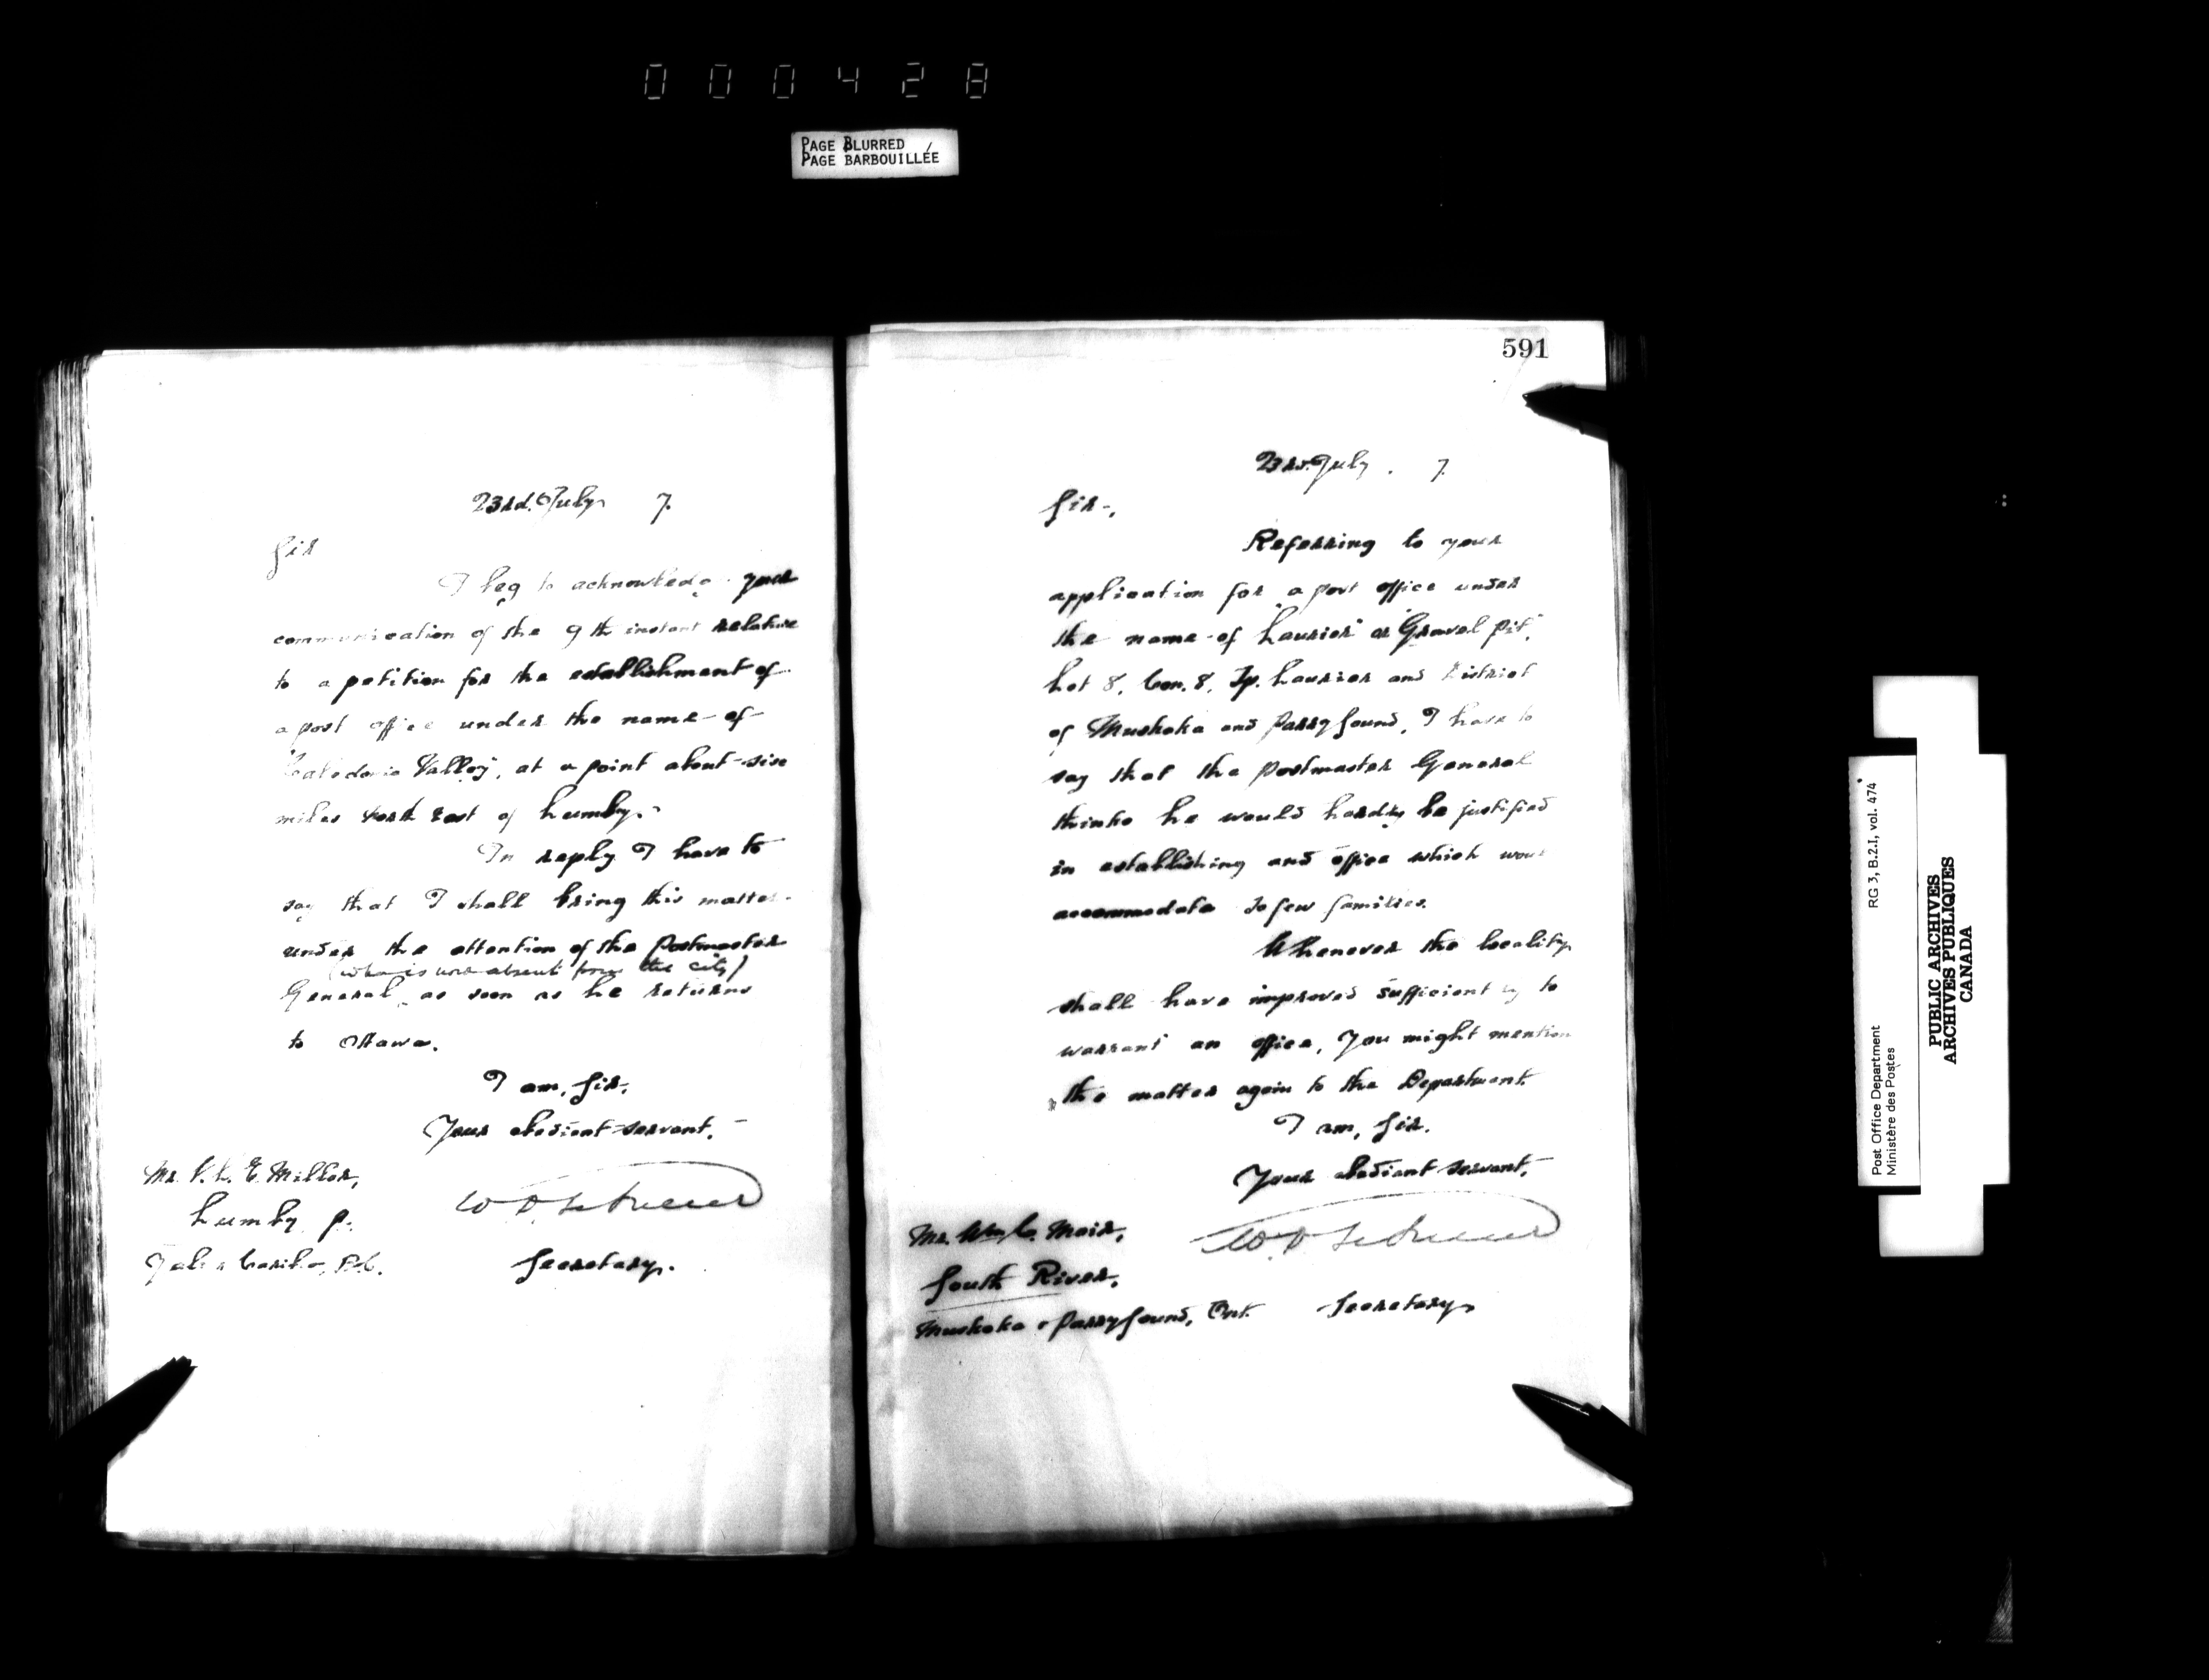 000428
PAGE BLURRED
PAGE BARBOUILLÉE
23rd. July 7.
Sir
I beg to acknowledge your
communication of the 9th instant relative
to a petition for the establishment of
a post office under the name of
"Caledonia Valley", at a point about sise
miles North East of Lumby.
In reply I have to
say that I shall bring this matter
under the attention of the Postmaster
(who is now absent from the city)
General, as soon as he returns
to Ottawa.
I am, Sir,
Your obedient servant,
Mr. E. Miller,
Lumby P.
Yale & Cariboo, B.C.
Secretary.
591
23rd. July. 7.
Sir,
Referring to your
application for a post office under
the name of Laurier or "Gravel pit",
Lot 8, Con. 8, Tp. Laurier and District
of Muskoka and Parry Sound, I have to
say that the Postmaster General
thinks he would hardly be justified
in establishing and office which would
accommodate so few families.
Whenever the locality
shall have improved sufficiently to
warrant an office, you might mention
the matter again to the Department.
I am, Sir.
Your obedient servant,
Mr. Wm. C. Mair,
South River,
Muskoka & Parry Sound, Ont.
Secretary
Post Office Department
Ministère des Postes
RG 3, B.2.I, vol. 474
PUBLIC ARCHIVES
ARCHIVES PUBLIQUES
CANADA